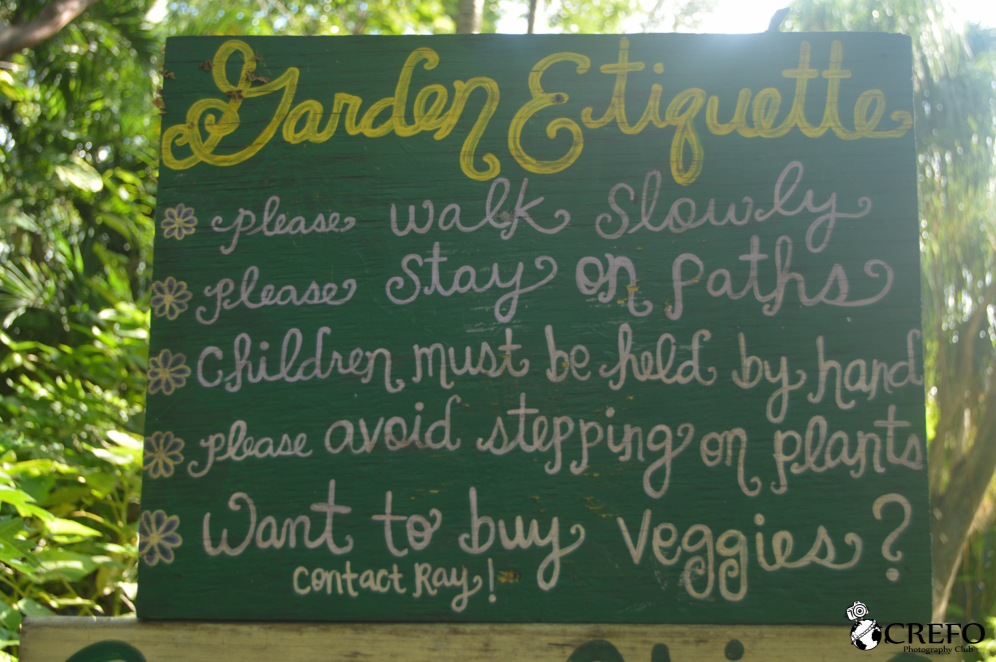 Garden Etiquette
please walk slowly
please stay on paths
Children must be held by hand
please avoid stepping on plants
Want to buy veggies?
Contact Ray!
CREFO
Photography Club